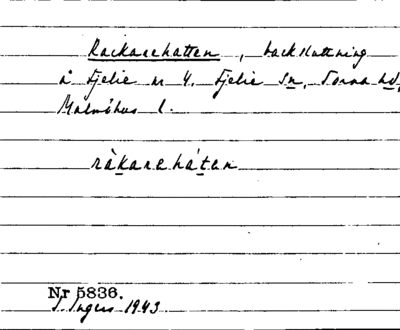 Rackarehatten, backsluttning
å Fjelie nr 4. Fjelie sn, Torna hd,
Malmöhus l.
ràkarehátən
Nr 5836.
I. Ingers 1943.